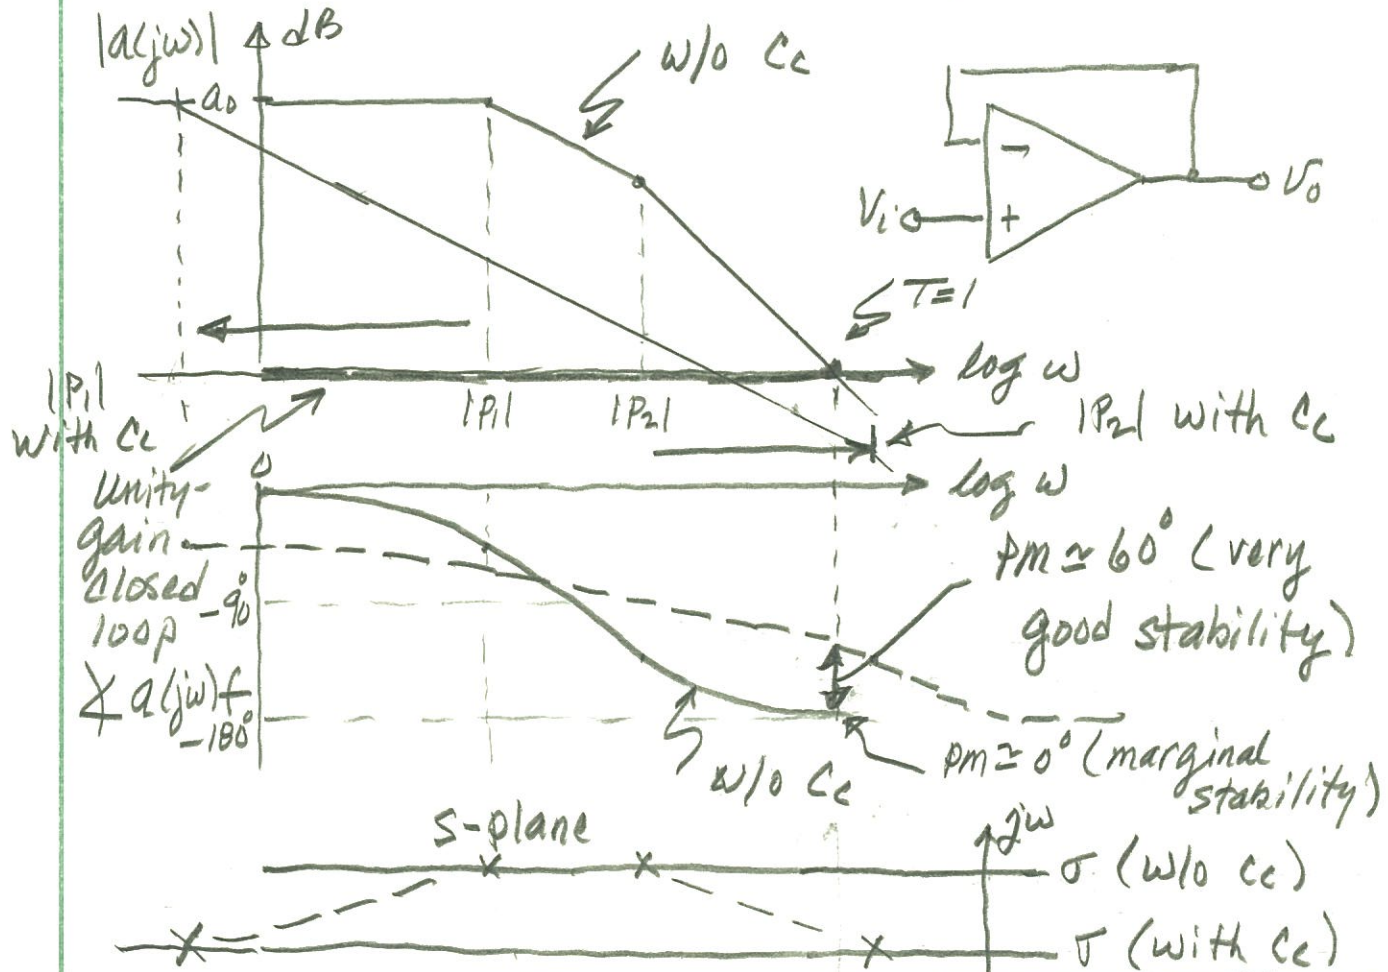 |a(jω)| dB
w/o Cc
a0
−
Vi
+
Vo
T=1
log ω
|P1|
with Cc
|P1|
|P2|
|P2| with Cc
0
log ω
Unity-
gain
closed
loop
-90°
∡ a(jω)f
-180°
pm ≃ 60° (very
good stability)
w/o Cc
pm ≃ 0° (marginal
stability)
s-plane
jω
σ (w/o Cc)
σ (with Cc)